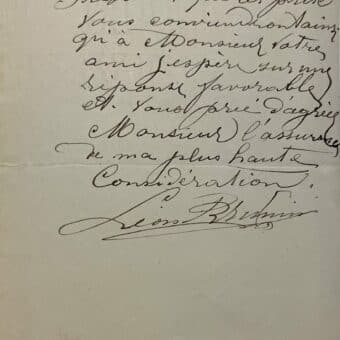 que
vous
qu'à Monsieur votre
ami j'espère sur une
réponse favorable
et vous prie d'agréer
Monsieur l'assurance
de ma plus haute
Considération.
Léon